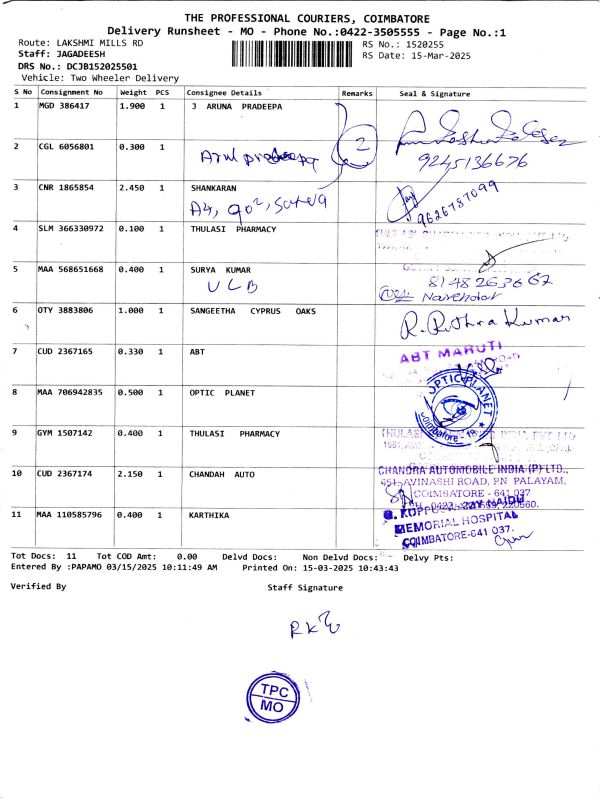 THE PROFESSIONAL COURIERS, COIMBATORE
Delivery Runsheet - MO - Phone No.:0422-3505555 - Page No.:1
Route: LAKSHMI MILLS RD
Staff: JAGADEESH
DRS No.: DCJB152025501
Vehicle: Two Wheeler Delivery
RS No.: 1520255
RS Date: 15-Mar-2025
S No Consignment No Weight PCS Consignee Details Remarks Seal & Signature
1 MGD 386417 1.900 1 J ARUNA PRADEEPA
2 CGL 6056801 0.300 1 2
9245136676
3 CNR 1865854 2.450 1 SHANKARAN
9626787099
4 SLM 366330972 0.100 1 THULASI PHARMACY
5 MAA 568651668 0.400 1 SURYA KUMAR
UCB
Narendar
6 OTY 3883806 1.000 1 SANGEETHA CYPRUS OAKS
R. Ruthra Kumar
7 CUD 2367165 0.330 1 ABT
ABT MARUTI
8 MAA 706942835 0.500 1 OPTIC PLANET
OPTIC PLANET
Coimbatore - 18
9 GYM 1507142 0.400 1 THULASI PHARMACY
10 CUD 2367174 2.150 1 CHANDAH AUTO
CHANDRA AUTOMOBILE INDIA (P) LTD.,
AVINASHI ROAD, PN PALAYAM,
COIMBATORE - 641 037
11 MAA 110585796 0.400 1 KARTHIKA
MEMORIAL HOSPITAL
COIMBATORE-641 037.
Tot Docs: 11 Tot COD Amt: 0.00 Delvd Docs: Non Delvd Docs: Delvy Pts:
Entered By :PAPAMO 03/15/2025 10:11:49 AM Printed On: 15-03-2025 10:43:43
Verified By Staff Signature
TPC
MO